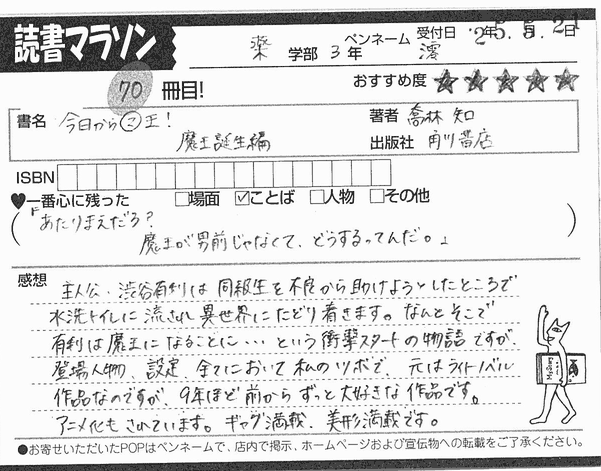 読書マラソン
薬 学部 3 年 ペンネーム 澪 受付日 '25.5.21日
70 冊目!
おすすめ度 ★★★★★
書名 今日から㋮王!
魔王誕生編
著者 喬林 知
出版社 角川書店
ISBN
♥一番心に残った □場面 ☑ことば □人物 □その他
『あたりまえだろ?
魔王が男前じゃなくて、どうするってんだ。』
感想
主人公・渋谷有利は同級生を不良から助けようとしたところで
水洗トイレに流され異世界にたどり着きます。なんとそこで
有利は魔王になることに…という衝撃スタートの物語ですが、
登場人物、設定、全てにおいて私のツボで、元はライトノベル
作品なのですが、9年ほど前からずっと大好きな作品です。
アニメ化もされています。ギャグ満載、美形満載です。
●お寄せいただいたPOPはペンネームで、店内で掲示、ホームページおよび宣伝物への転載をご了承ください。